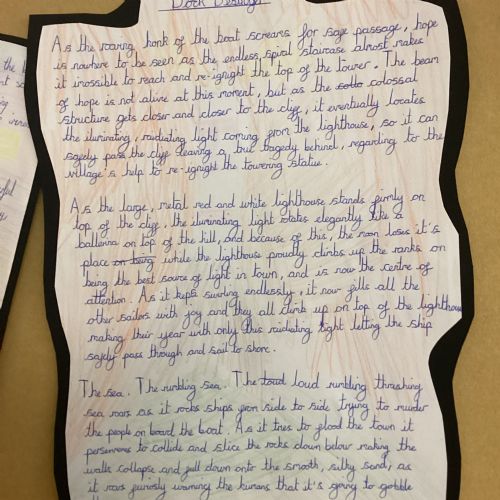 As the roaring honk of the boat screams for safe passage, hope
is nowhere to be seen as the endless spiral staircase almost makes
it imossible to reach and re-ignight the top of the tower. The beam
of hope is not alive at this moment, but as the colossal
structure gets closer and closer to the cliff, it eventually locates
the iluminating, raidiating light coming from the lighthouse, so it can
safely pass the cliff leaving a true tragedy behind, regarding to the
village's help to re-ignight the towering statue.
As the large, metal red and white lighthouse stands firmly on
top of the cliff, the iluminating light rotates elegantly like a
ballerina on top of the hill, and because of this, the moon loses it's
place on being while the lighthouse proudly climbs up the ranks on
being the best source of light in town, and is now the centre of
attention. As it keeps swirling endlessly, it now fills all the
other sailors with joy and they all climb up on top of the lighthouse
making their year with only this raidiating light letting the ship
safely pass through and sail to shore.
The sea. The rumbling sea. The loud loud rumbling thrashing
sea roars as it rocks ships from side to side trying to murder
the people on board the boat. As it tries to flood the town it
perseveres to collide and slice the rocks down below making the
walls collapse and fall down onto the smooth, silky sand, as
it roars furiosly warning the humans that it's going to gobble